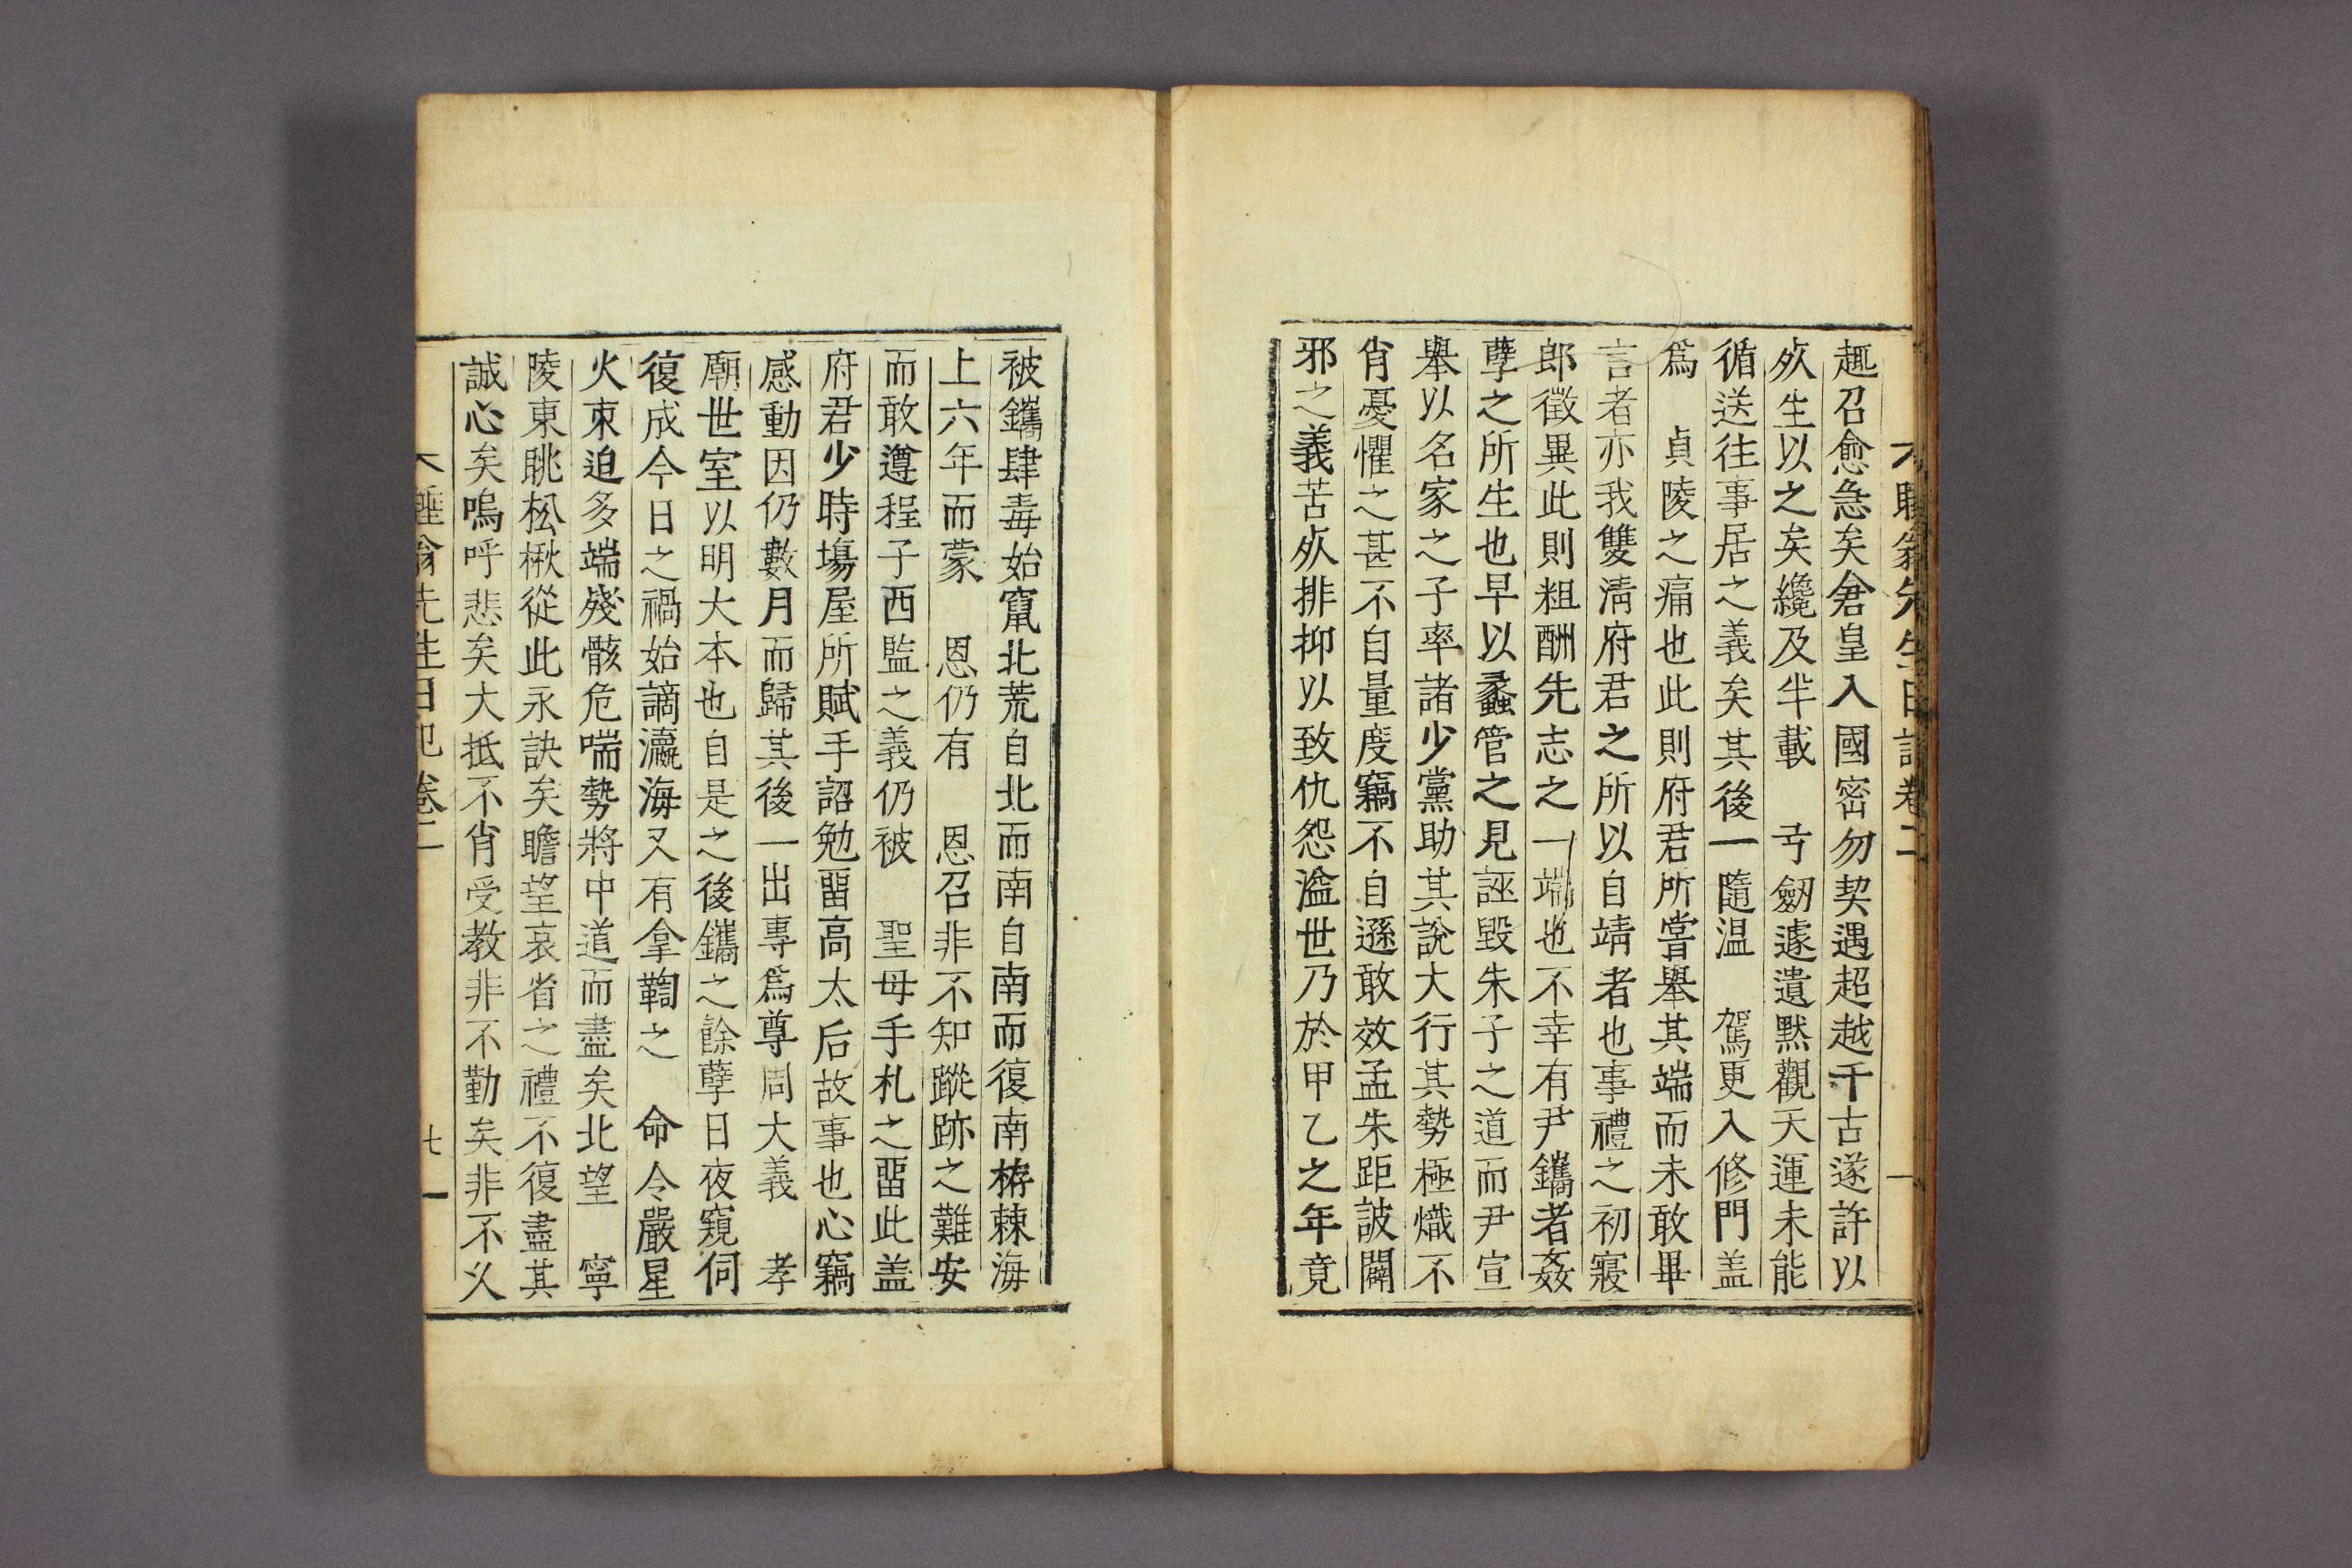 趣召愈急矣畣皇入國密勿契遇超越千古遂許以
𣦸生以之矣纔及半載 弓劒遽遺黙觀天運未能
循送往事居之義矣其後一隨温 駕更入修門盖
爲 貞陵之痛也此則府君所嘗舉其端而未敢畢
言者亦我雙淸府君之所以自靖者也事禮之初寢
郎徵異此則粗酬先志之一端也不幸有尹鑴者姦
孽之所生也早以蠡管之見誣毀朱子之道而尹宣
擧以名家之子率諸少黨助其說大行其勢極熾不
肖憂懼之甚不自量度竊不自遜敢效孟朱距詖闢
邪之義苦𣦸排抑以致仇怨溢世乃於甲乙之年竟
被鑴肆毒始竄北荒自北而南自南而復南栫棘海
上六年而蒙 恩仍有 恩召非不知蹤跡之難安
而敢遵程子西監之義仍被 聖母手札之留此盖
府君少時塲屋所賦手詔勉留高太后故事也心竊
感動因仍數月而歸其後一出專爲尊周大義 孝
廟世室以明大本也自是之後鑴之餘孽日夜窺伺
復成今日之禍始謫瀛海又有拿鞫之 命令嚴星
火束迫多端殘骸危喘勢將中道而盡矣北望 寧
陵東眺松楸從此永訣矣瞻望哀省之禮不復盡其
誠心矣嗚呼悲矣大抵不肖受教非不勤矣非不乂
睡翁先生日記卷二
七